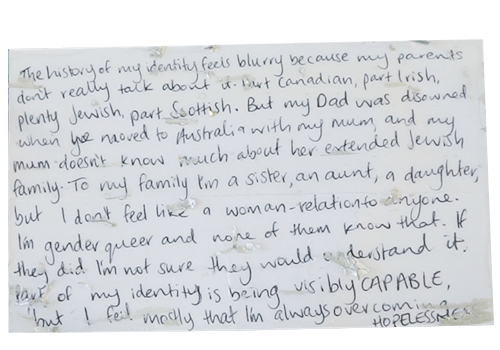 The history of my identity feels blurry because my parents
don't really talk about it. Part Canadian, part Irish,
plenty Jewish, part Scottish. But my Dad was disowned
when he moved to Australia with my mum, and my
mum doesn't know much about her extended Jewish
family. To my family I'm a sister, an aunt, a daughter,
but I don't feel like a woman-relation to anyone.
I'm gender queer and none of them know that. If
they did I'm not sure they would understand it.
Part of my identity is being visibly CAPABLE,
but I feel mostly that I'm always overcoming
HOPELESSNESS